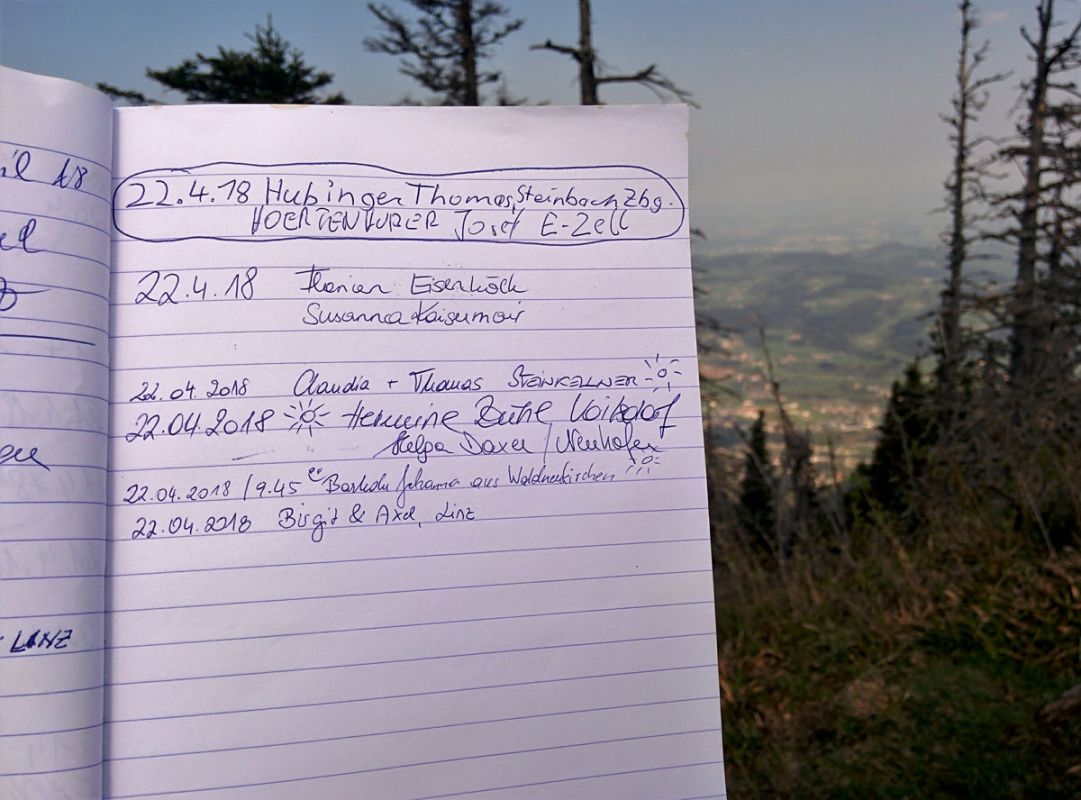 il 18
el
LINZ
22.4.18 Hubinger Thomas, Steinbach Zbg.
Josef E-Zell
22.4.18 Florian Eisenhöch
Susanna
22.04.2018 Claudia + Thomas STEINKELLNER
22.04.2018 Hermine
Helga Daxer / Neuhofen
22.04.2018 / 9.45 Johanna aus Waldneukirchen
22.04.2018 Birgit & Axel, Linz